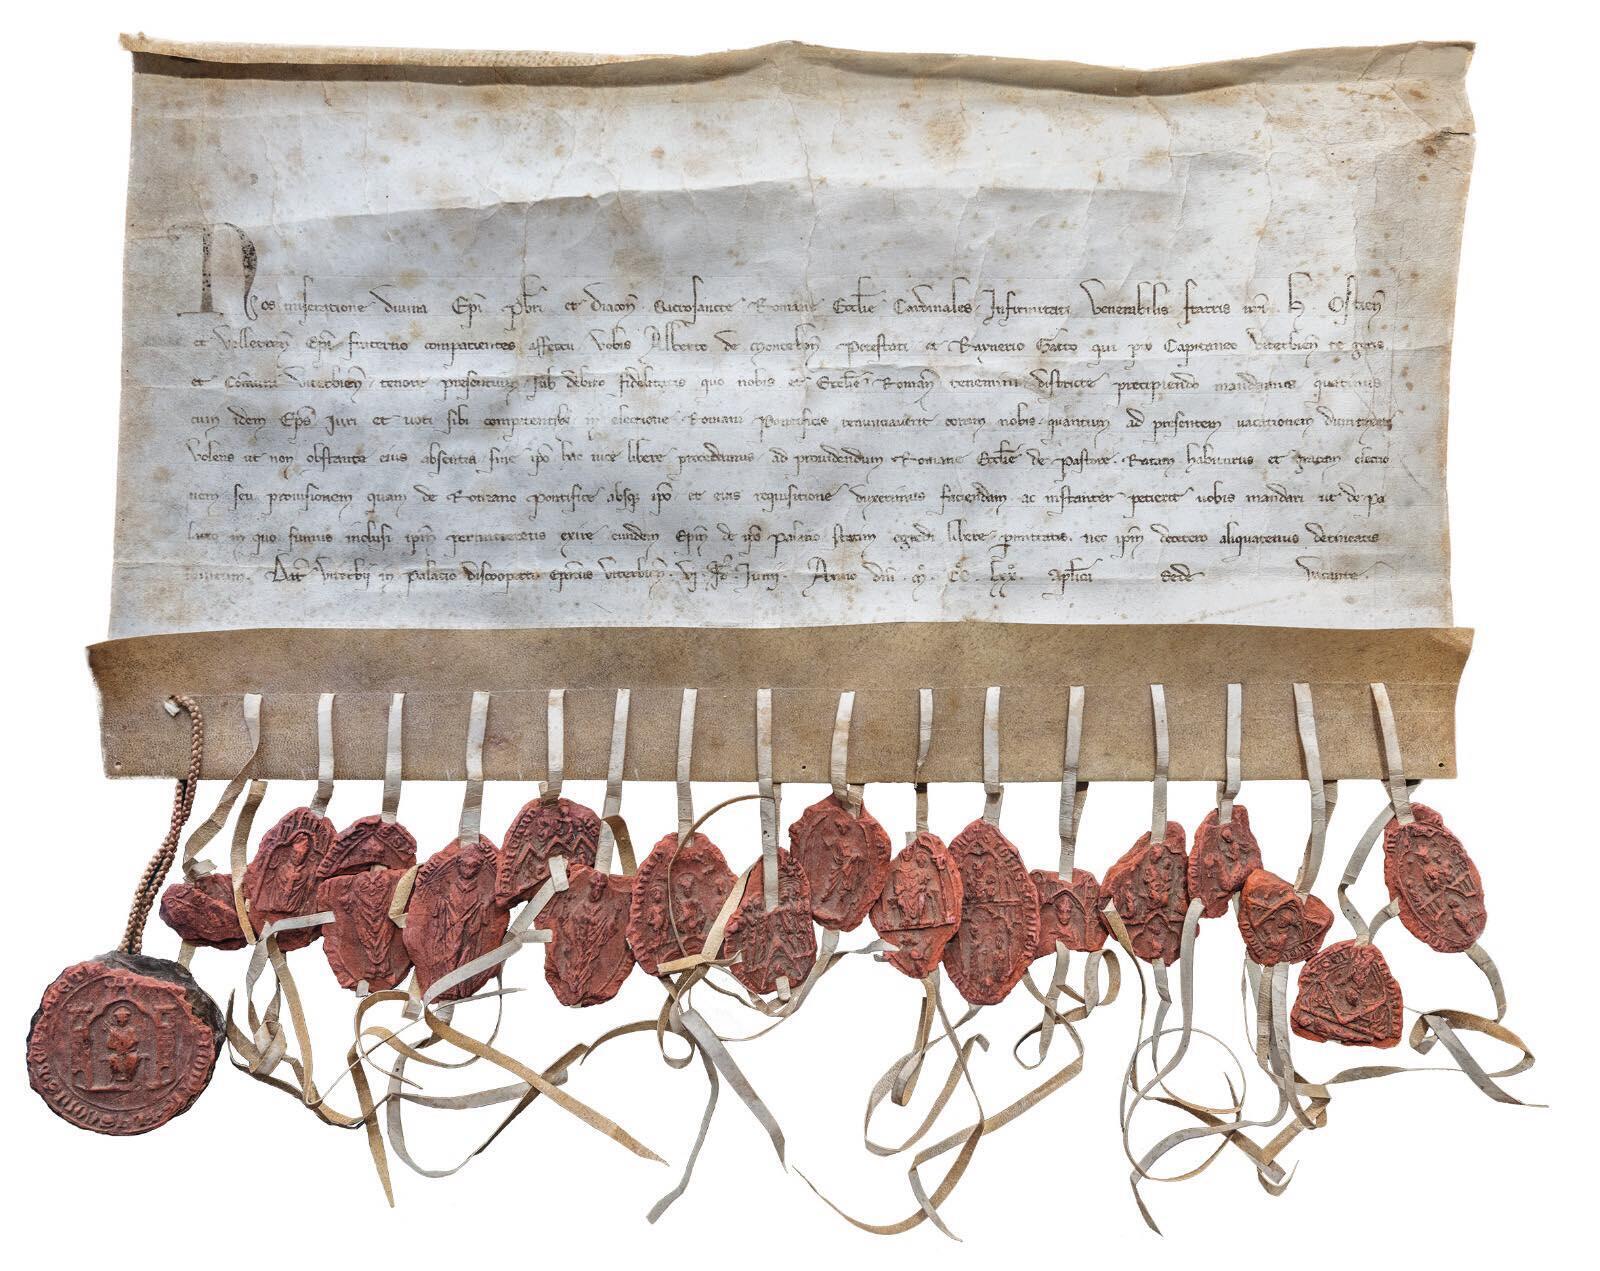 Nos miseratione divina Epi Pbri et Diacon Sacrosancte Romane Ecclie Cardinales Infirmitati venerabilis fratris nri h. Ostien
et Velletren Epi fraterno compatientes affectu vobis Alberto de Montebon Potestati et Raynerio Gatto qui pro Capitaneo Viterbien se geris
et Comuni Viterbien tenore presentium sub debito fidelitatis quo nobis et Ecclie Roman tenemini districte precipiendo mandamus quatinus
cum idem Eps Iuri et voci sibi competentibz in electione Romani Pontificis renunciaverit coram nobis quantum ad presentem vacationem dumtaxat
Volens ut non obstante eius absentia sine ipo hac vice libere procedamus ad providendum Romane Ecclie de Pastore. Ratam habiturus et gratam electio
nem seu provisionem quam de Romano Pontifice absqz ipo et eius requisitione duxerimus faciendam ac instanter petierit vobis mandari ut de pa
latio in quo sumus inclusi ipm permitteretis exire eundem Epm de ipo Palatio statim egredi libere pmittatis. nec ipm decetero aliquatenus detineatis
invitum. Dat Viterbii in Palatio discooperto Epatus Viterbien. vj. Id. Iunij. Anno dni. M. CC. lxx. Aplica Sede vacante.